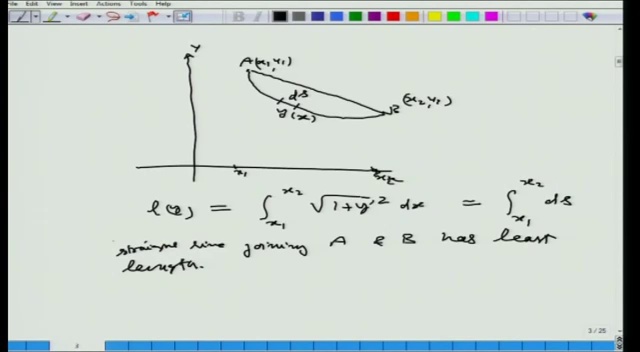 Edit View Insert Actions Tools Help
y
A(x₁,y₁)
ds
B (x₂,y₁)
y(x)
x₁
l(y) = ∫_{x₁}^{x₂} √1+y'² dx = ∫_{x₁}^{x₂} ds
straight line joining A & B has least
length.
3 / 25
3